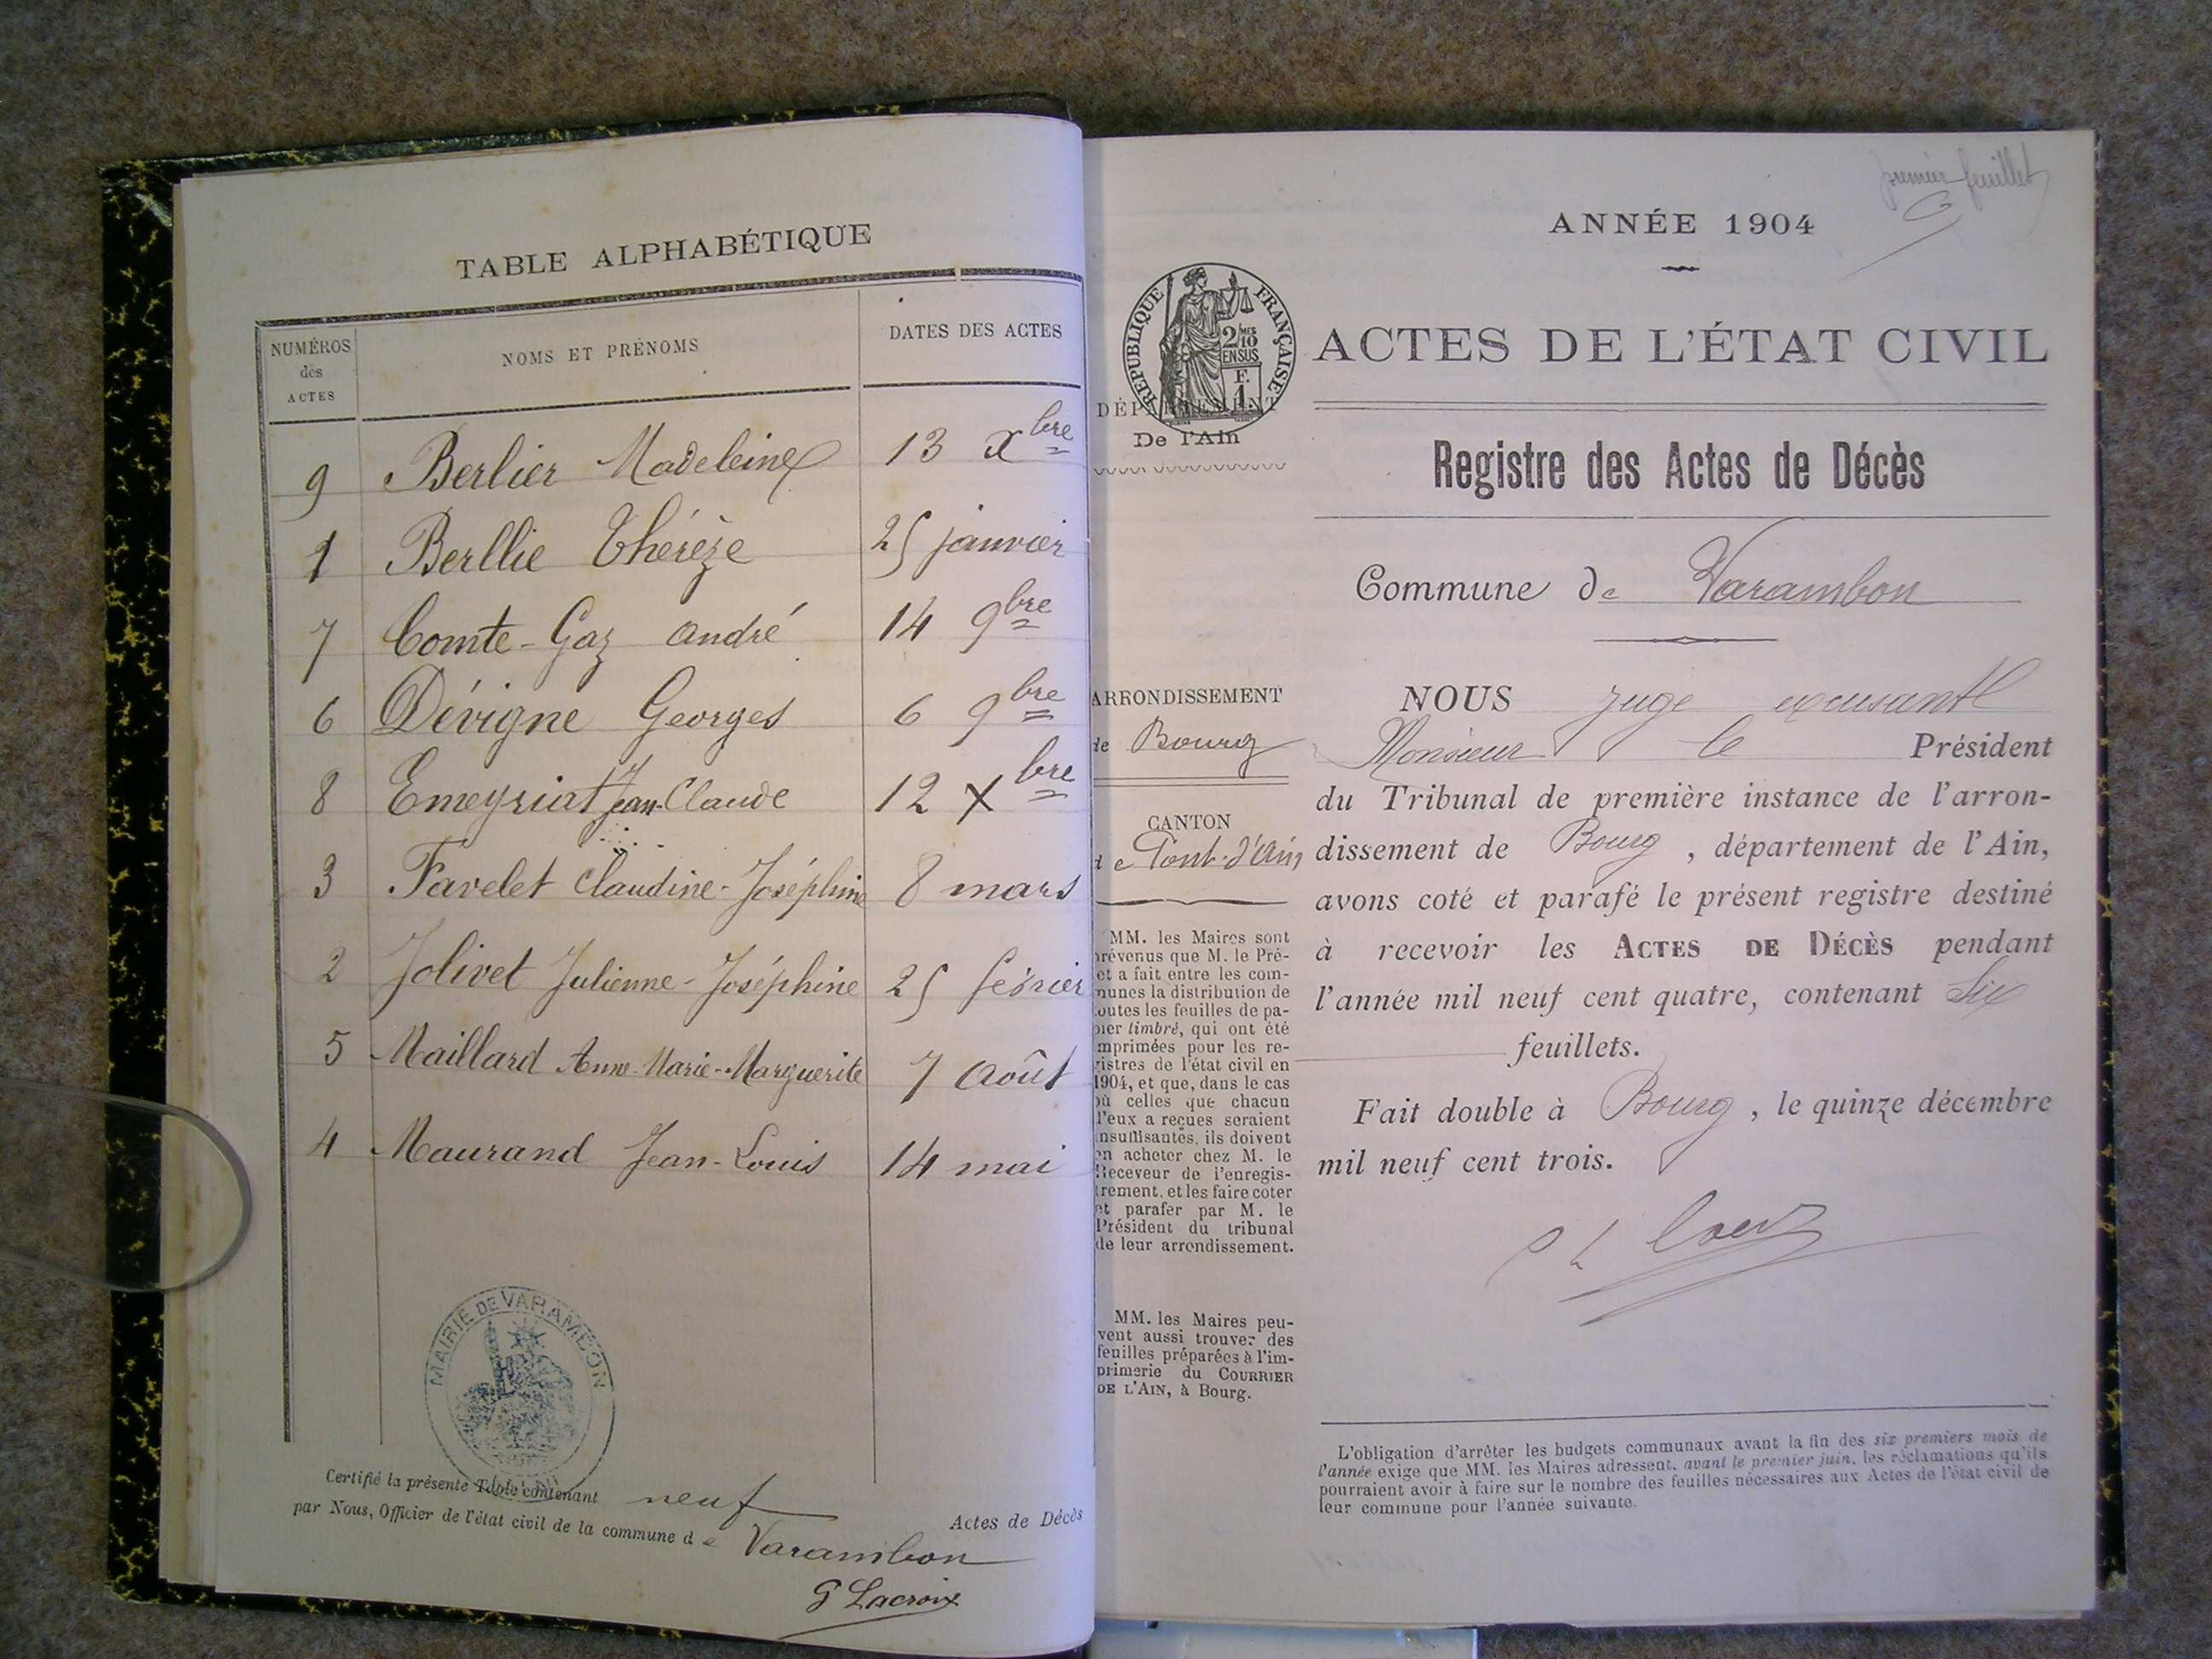 TABLE ALPHABÉTIQUE
NUMÉROS des ACTES
NOMS ET PRÉNOMS
DATES DES ACTES
9 Berlier Madeleine 13 Xbre
1 Berllie Thérèze 25 janvier
7 Comte-Gaz André 14 9bre
6 Dévigne Georges 6 9bre
8 Emeyriat Jean-Claude 12 Xbre
3 Favelet Claudine-Joséphine 8 mars
2 Jolivet Julienne-Joséphine 25 février
5 Maillard Anne-Marie-Marguerite 7 Août
4 Maurand Jean-Louis 14 mai
MAIRIE DE VARAMBON
Certifié la présente Table contenant neuf Actes de Décès
par Nous, Officier de l'état civil de la commune de Varambon
G Lacroix
premier feuillet
ANNÉE 1904
RÉPUBLIQUE FRANÇAISE
2/10 MES
EN SUS
F.
1
DÉPARTEMENT
De l'Ain
ARRONDISSEMENT
de Bourg
CANTON
de Pont-d'Ain
MM. les Maires sont
prévenus que M. le Pré-
et a fait entre les com-
munes la distribution de
toutes les feuilles de pa-
pier timbré, qui ont été
imprimées pour les re-
gistres de l'état civil en
1904, et que, dans le cas
où celles que chacun
d'eux a reçues seraient
insuffisantes, ils doivent
en acheter chez M. le
Receveur de l'enregis-
trement, et les faire coter
et parafer par M. le
Président du tribunal
de leur arrondissement.
MM. les Maires peu-
vent aussi trouver des
feuilles préparées à l'im-
primerie du COURRIER
DE L'AIN, à Bourg.
ACTES DE L'ÉTAT CIVIL
Registre des Actes de Décès
Commune de Varambon
NOUS Juge
Monsieur le Président
du Tribunal de première instance de l'arron-
dissement de Bourg, département de l'Ain,
avons coté et parafé le présent registre destiné
à recevoir les ACTES DE DÉCÈS pendant
l'année mil neuf cent quatre, contenant Six
feuillets.
Fait double à Bourg, le quinze décembre
mil neuf cent trois.
L'obligation d'arrêter les budgets communaux avant la fin des six premiers mois de
l'année exige que MM. les Maires adressent, avant le premier juin, les réclamations qu'ils
pourraient avoir à faire sur le nombre des feuilles nécessaires aux Actes de l'état civil de
leur commune pour l'année suivante.